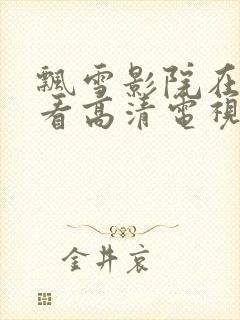 飄雪影院在
看高清電視
金井哀